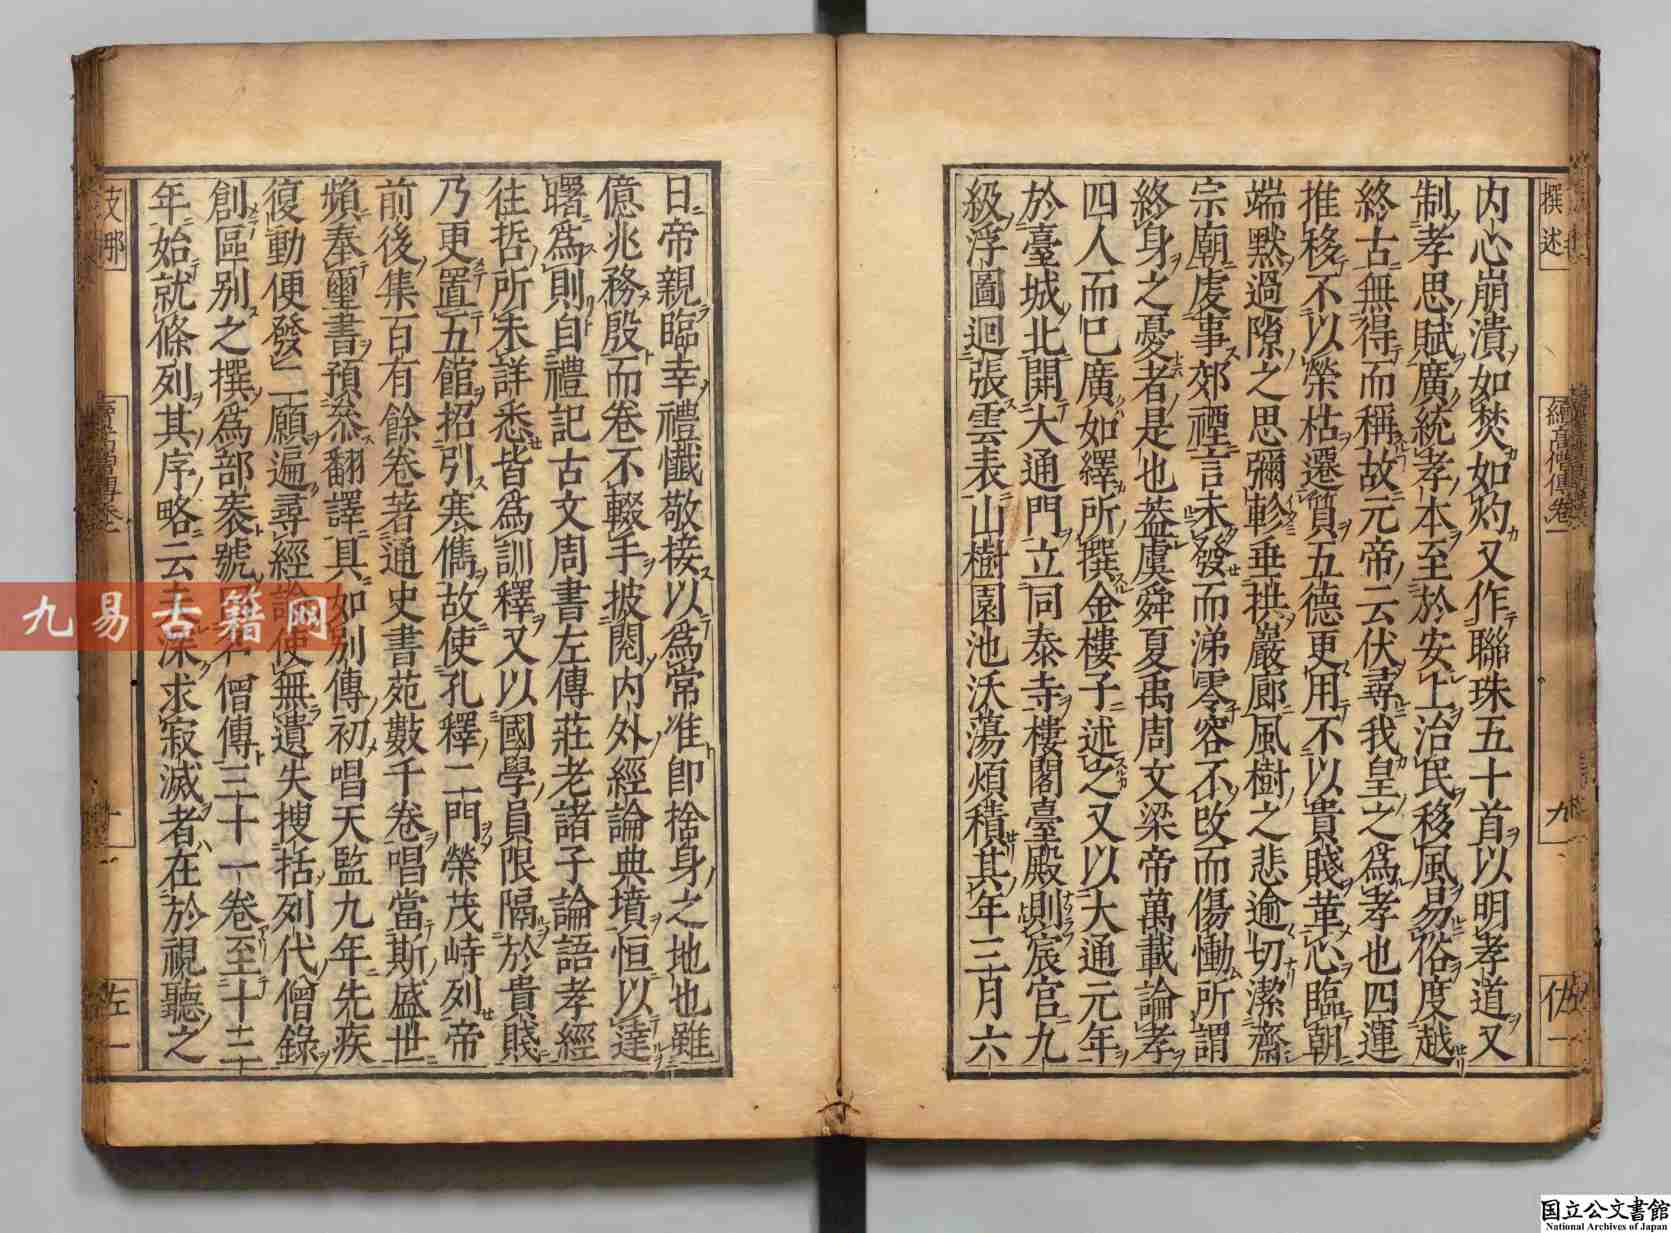 撰述
續高僧傳卷一
九
佐一
内心崩潰如焚如灼又作聯珠五十首以明孝道又
制孝思賦廣統孝本至於安上治民移風易俗度越
終古無得而稱故元帝云伏尋我皇之爲孝也四運
推移不以榮枯遷質五德更用不以貴賤革心臨朝
端默過隙之思彌軫垂拱巖廊風樹之悲逾切潔齋
宗廟虔事郊禋言未發而涕零容不改而傷慟所謂
終身之憂者是也蓋虞舜夏禹周文梁帝萬載論孝
四人而已廣如繹所撰金樓子述之又以大通元年
於臺城北開大通門立同泰寺樓閣臺殿則宸宮九
級浮圖迴張雲表山樹園池沃蕩煩積其年三月六
日帝親臨幸禮懺敬接以爲常准即捨身之地也雖
億兆務殷而卷不輟手披閱内外經論典墳恒以達
曙爲則自禮記古文周書左傳莊老諸子論語孝經
往哲所未詳悉皆爲訓釋又以國學員限隔於貴賤
乃更置五館招引寒儁故使孔釋二門榮茂峙列帝
前後集百有餘卷著通史書苑數千卷唱當斯盛世
頻奉璽書預叅翻譯具如別傳初唱天監九年先疾
復動便發二願遍尋經論使無遺失搜括列代僧錄
創區别之撰爲部袠號僧傳三十一卷至十三
年始就條列其序略云深求寂滅者在於視聽之
支那
九易古籍网
国立公文書館
National Archives of Japan